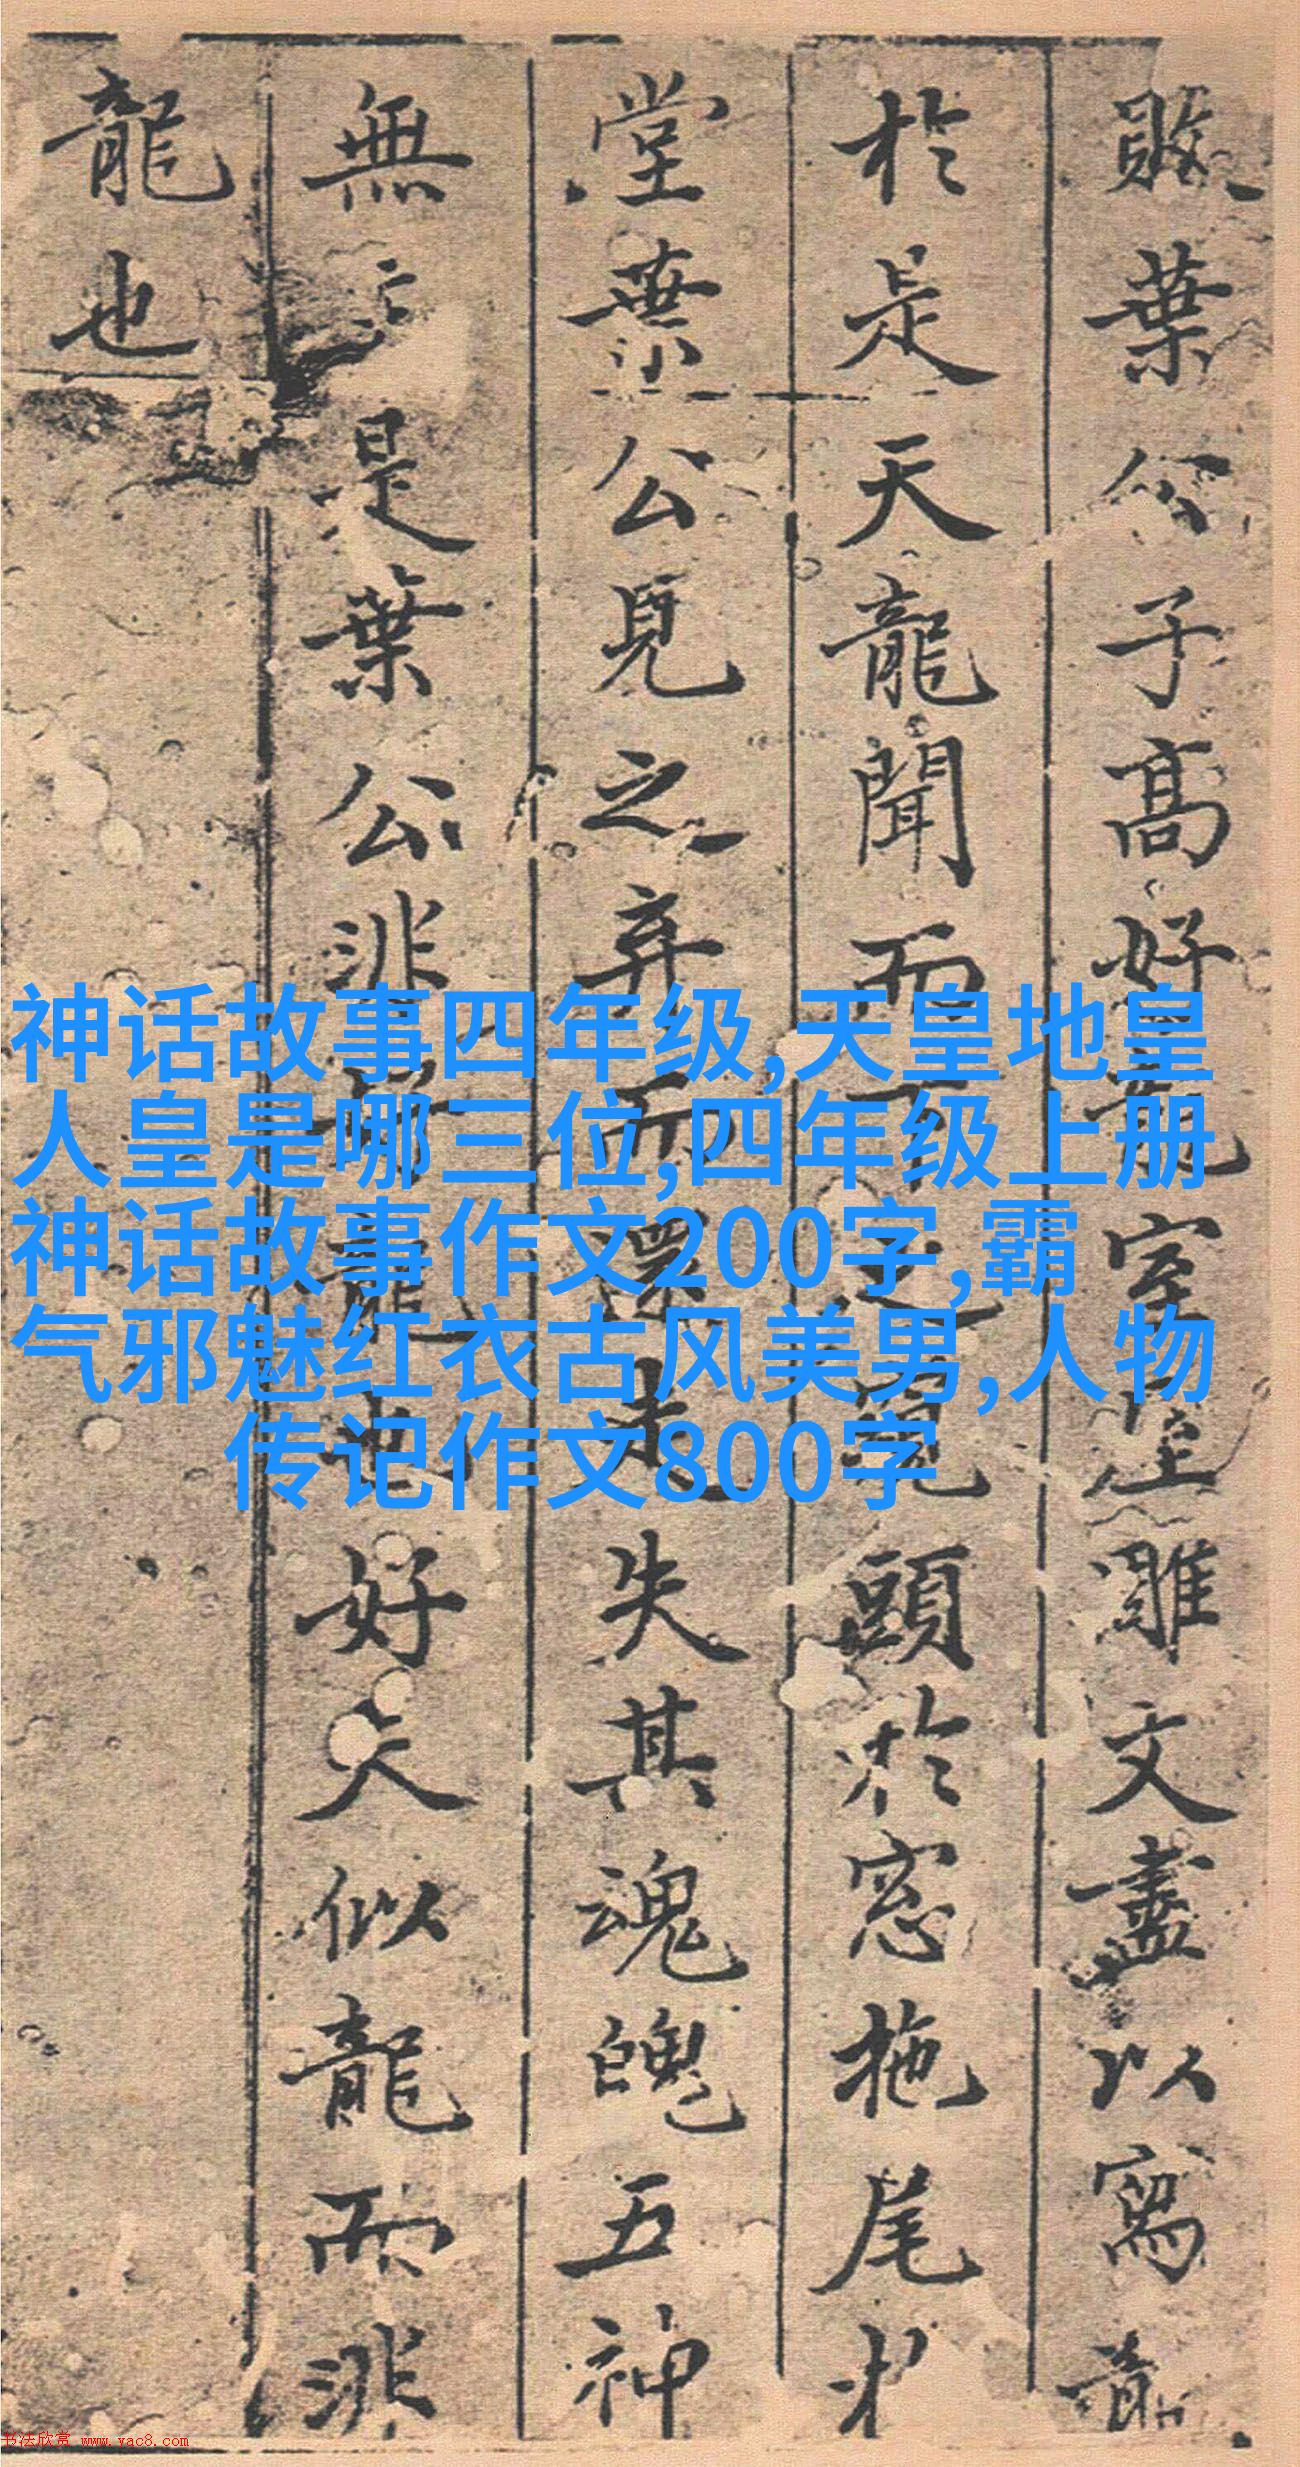 敗葉公子髙好龍室雕文盡以寫龍
於是天龍聞而下之窺頭於窓拖尾於
堂葉公見之弃而還走失其魂魄五神
無主是葉公非好龍也好夫似龍而非
龍也
神话故事四年级,天皇地皇
人皇是哪三位,四年级上册
神话故事作文200字,霸
气邪魅红衣古风美男,人物
传记作文800字
书法欣赏 www.yac8.com